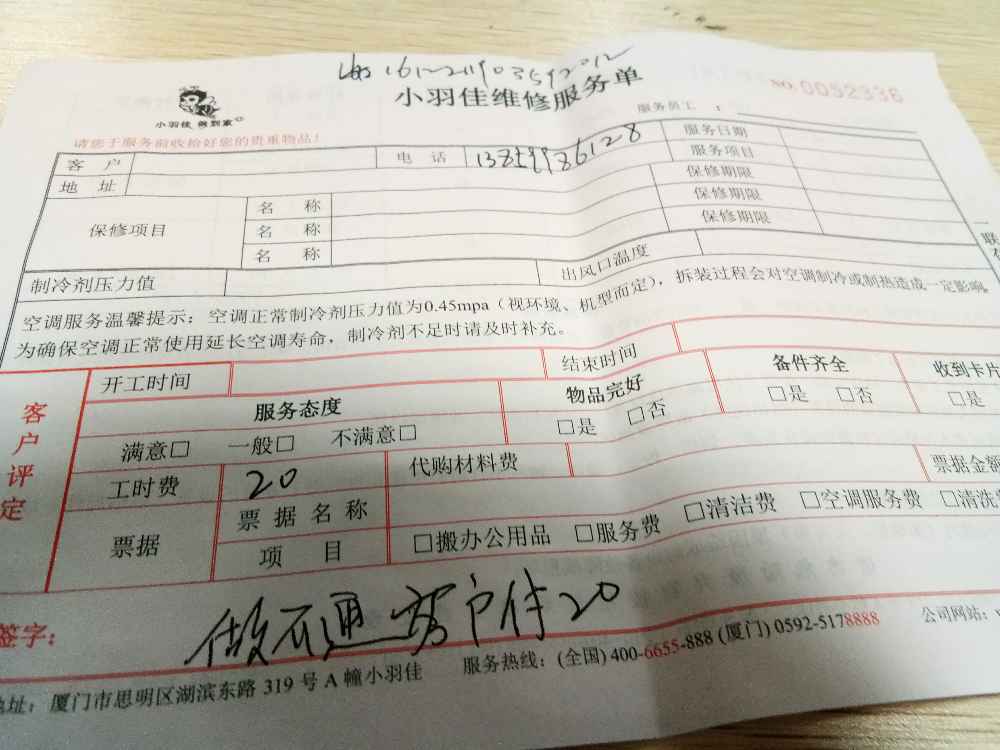 1612211903592012
小羽佳 做到家
小羽佳维修服务单
NO.0052336
服务员工 :
请您于服务前收拾好您的贵重物品!
客户 电话 服务日期
地址 服务项目
保修项目 名称 保修期限
名称 保修期限
名称 保修期限
制冷剂压力值 出风口温度
空调服务温馨提示:空调正常制冷剂压力值为0.45mpa(视环境、机型而定),拆装过程会对空调制冷或制热造成一定影响。
为确保空调正常使用延长空调寿命,制冷剂不足时请及时补充。
客户评定
开工时间 结束时间
服务态度 物品完好 备件齐全 收到卡片
满意□ 一般□ 不满意□ □是 □否 □是 □否 □是
工时费 20 代购材料费 票据金额
票据 票据名称
项目 □搬办公用品 □服务费 □清洁费 □空调服务费 □清洗
签字: 做不通 客户付20
地址:厦门市思明区湖滨东路 319 号 A 幢小羽佳 服务热线:(全国) 400-6655-888 (厦门) 0592-5178888 公司网站: